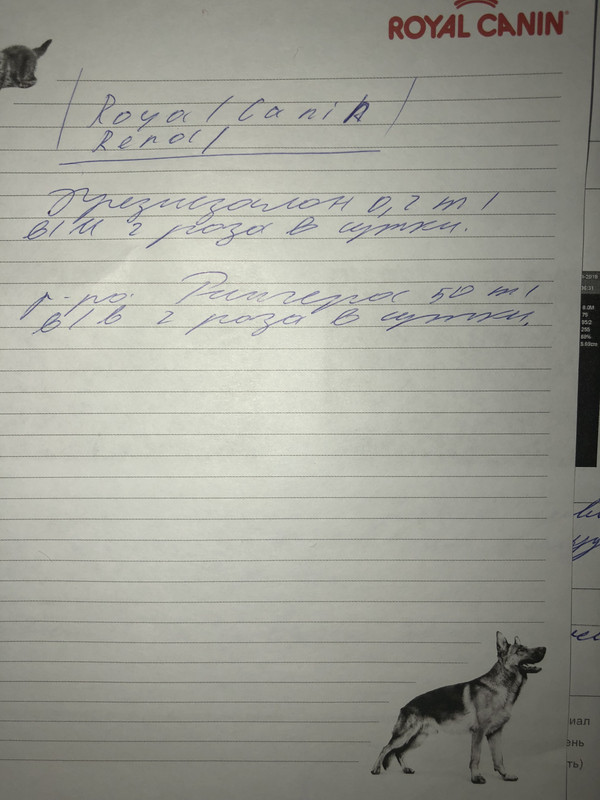 ROYAL CANIN
Royal Canin
Renal
Преднизалон 0,2 ml
в/м 2 раза в сутки.
р-ра Рингера 50 ml
в/в 2 раза в сутки.
иал
ень
ть)